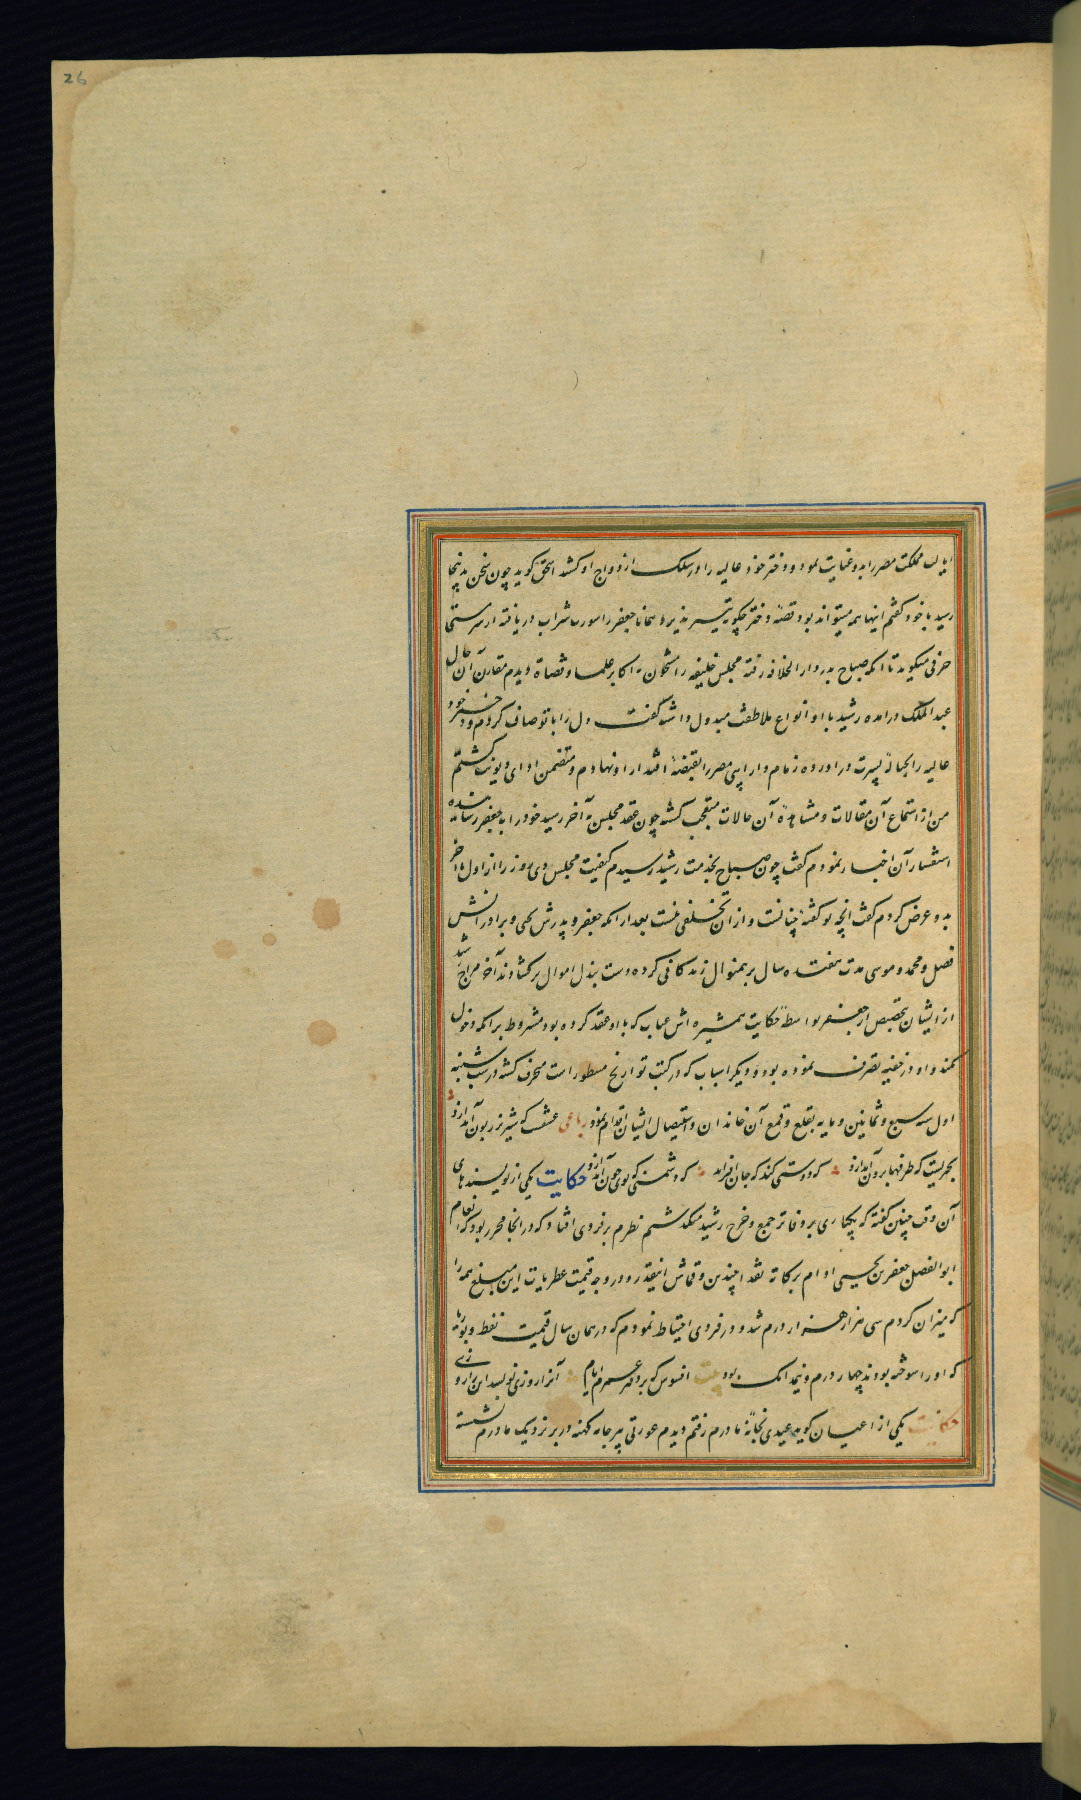 26
ایالت مملکت مصر را بدو عنایت نمود و دختر خود عالیه را در سلک ازدواج او کشد اسحق گوید چون سخن بدینجا
رسید با خود گفتم اینها همه میتواند بود قصهٔ دختر چگونه تیسیر پذیرد همانا جعفر را سورت شراب دریافته از سر مستی
حرفی میگوید تا آنکه صباح بدر دار الخلافه رفته مجلس خلیفه را مشحون به اکابر علما و قضاة دیدم مقارن آن حال
عبد الملک درآمده رشید با او انواع ملاطفت مبذول داشته گفت دل را با تو صاف کردم و دختر خود
عالیه را بحبالهٔ پسرت درآورده زمام دارایی مصر را بقبضهٔ اقتدار او نهادم و متضمن ادای دیونت گشتم
من از استماع آن مقالات و مشاهدهٔ آن حالات متعجب گشته چون عقد مجلس به آخر رسید خود را به جعفر رسانیده
استفسار آن اخبار نمودم گفت چون صباح بخدمت رشید رسیدم کیفیت مجلس دی روز را از اول تا آخر
بدو عرض کردم گفت آنچه تو گفتهٔ چنانست و از آن تخلفی نیست بعد از آنکه جعفر و پدرش یحیی و برادرانش
فضل و محمد و موسی مدت هفده سال برینمنوال زندگانی کرده دست ببذل اموال برگشادند آخر مزاج رشید
از ایشان بتخصیص از جعفر بواسطهٔ حکایت همشیره اش عباسه که با او عقد کرده بود مشروط بر آنکه دخول
نکند و او در خفیه تصرف نموده بود و دیگر اسباب که در کتب تواریخ مسطور است منحرف گشته در شب شنبه
اول سنه سبع و ثمانین و مایه بقلع و قمع آن خاندان و استیصال ایشان اقدام نمود رباعی عشقست که شیر نر زبون آید ازو
بحریست که طرفها برون آید ازو که دوستی کند که جان افزاید که دشمنی که بوی خون آید ازو حکایت یکی از نویسندهای
آن وقت چنین گفته که بیکباری بر دفاتر جمع و خرج رشید میگذشتم نظرم بر فردی افتاد که در آنجا محرر بود که انعام
ابو الفضل جعفر بن یحیی ادام برکاته نقدا چندین و قماش اینقدر و در وجه قیمت عطریات این مبلغ همه را
که میزان کردم سی هزار هزار درم شد و در فردی احتیاط نمودم که در همان سال قیمت نفط و بوریا
که او را سوخته بودند چهار درم و نیمدانک بود بیت افسوس که بر دفتر عمرم ایام آنرا روزی نویسد این را روزی
حکایت یکی از اعیان گوید عیدی بخانهٔ مادرم رفتم دیدم عورتی پیر جامه کهنه در بر نزدیک مادرم نشسته